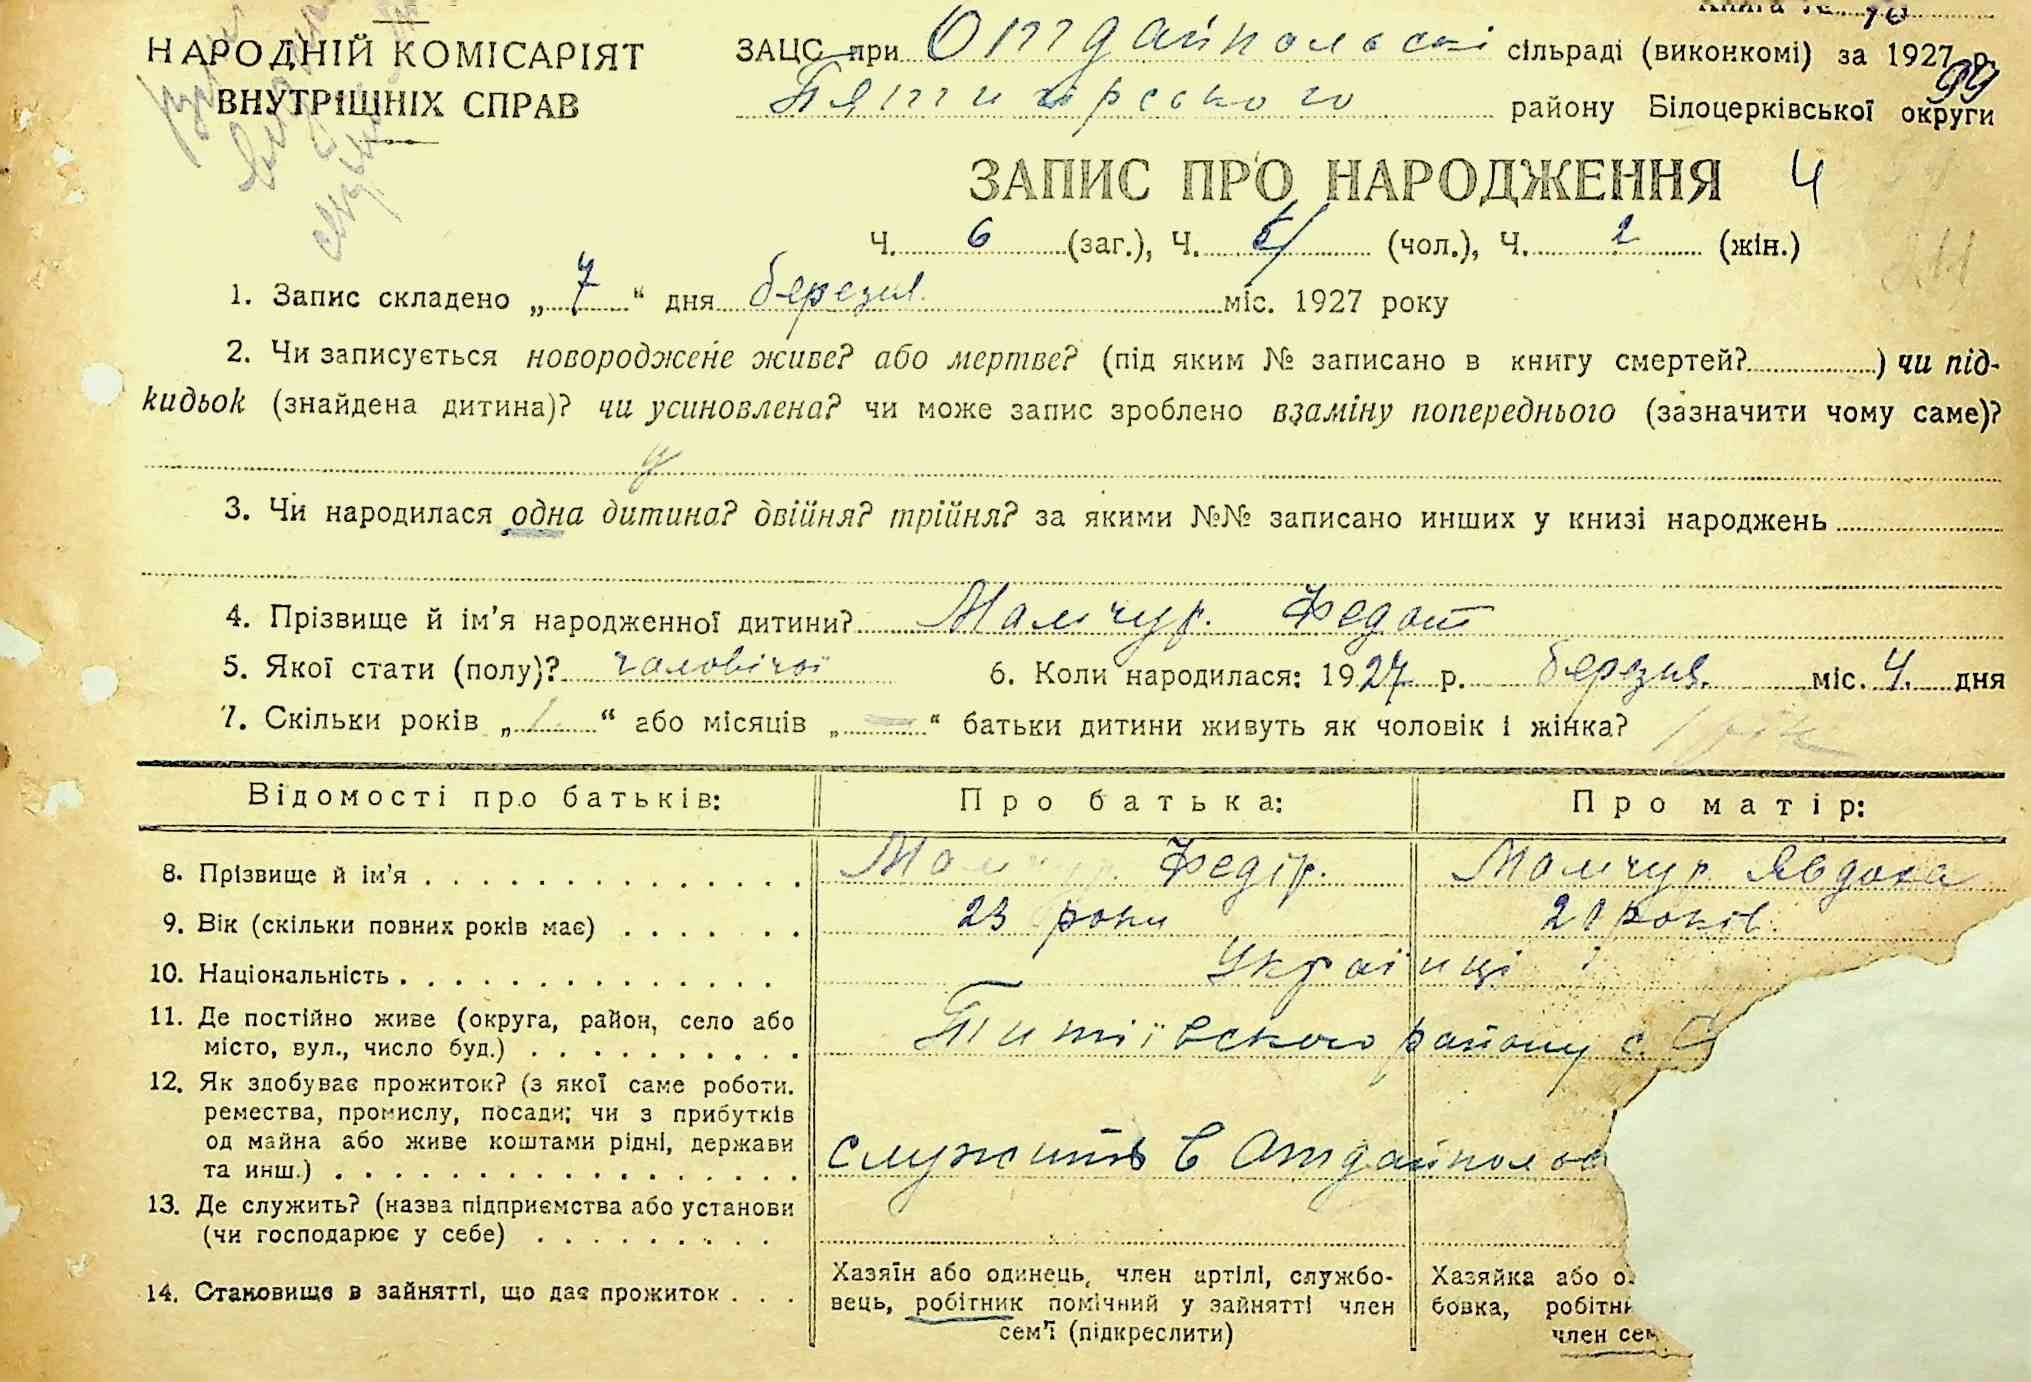 НАРОДНІЙ КОМІСАРІЯТ
ВНУТРІШНІХ СПРАВ
ЗАЦС при Оттдайпольскі сільраді (виконкомі) за 1927 р.
Пятигірського району Білоцерківської округи
99
ЗАПИС ПРО НАРОДЖЕННЯ 4
Ч. 6 (заг.), Ч. (чол.), Ч. 2 (жін.)
1. Запис складено „ 7 “ дня березня міс. 1927 року
2. Чи записується новороджене живе? або мертве? (під яким № записано в книгу смертей? ) чи під-
кидьок (знайдена дитина)? чи усиновлена? чи може запис зроблено взаміну попереднього (зазначити чому саме)?
3. Чи народилася одна дитина? двійня? трійня? за якими №№ записано инших у книзі народжень
4. Прізвище й ім’я народженної дитини? Мамчур. Федот
5. Якої стати (полу)? чоловічої 6. Коли народилася: 1927 р. березня. міс. 4. дня
7. Скільки років „ 1 “ або місяців „ — “ батьки дитини живуть як чоловік і жінка? 1 рік
Відомості про батьків: Про батька: Про матір:
8. Прізвище й ім’я Мамчур. Федір. Мамчур Явдоха
9. Вік (скільки повних років має) 23 роки 21 років.
10. Національність Українці
11. Де постійно живе (округа, район, село або
місто, вул., число буд.) Титіївского району с.
12. Як здобуває прожиток? (з якої саме роботи.
ремества, промислу, посади; чи з прибутків
од майна або живе коштами рідні, держави
та инш.) служить в Отдайполов
13. Де служить? (назва підприємства або установи
(чи господарює у себе)
14. Становище в зайнятті, що дає прожиток . . .
Хазяїн або одинець, член артілі, службо-
вець, робітник помічний у зайнятті член
сем’ї (підкреслити)
Хазяйка або о
бовка, робітн
член сем